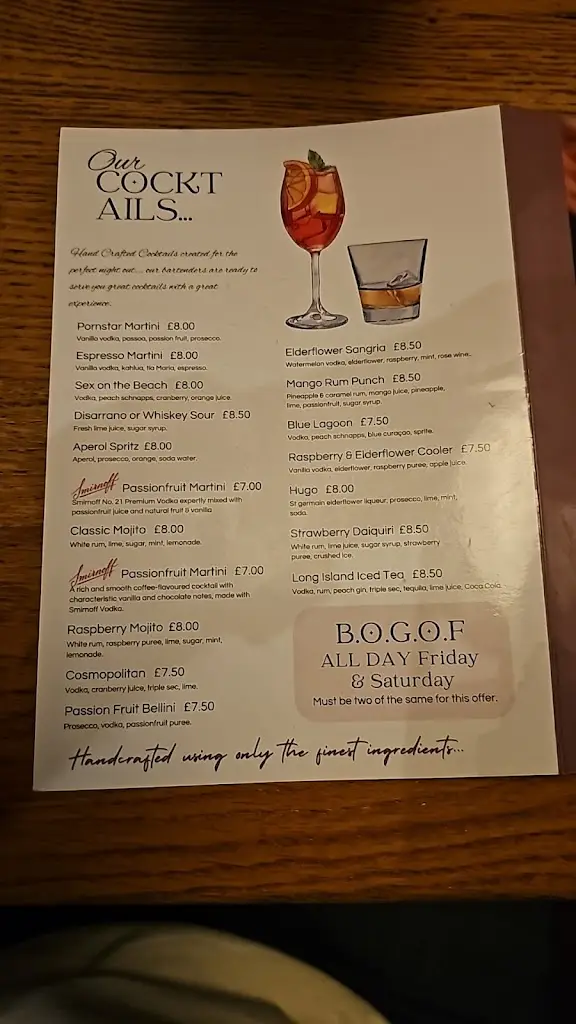 Our
COCKT
AILS...
Hand Crafted Cocktails created for the
perfect night out.... our bartenders are ready to
serve you great cocktails with a great
experience.
Pornstar Martini £8.00
Vanilla vodka, passoa, passion fruit, prosecco.
Espresso Martini £8.00
Vanilla vodka, kahlua, tia Maria, espresso.
Sex on the Beach £8.00
Vodka, peach schnapps, cranberry, orange juice.
Disarrano or Whiskey Sour £8.50
Fresh lime juice, sugar syrup.
Aperol Spritz £8.00
Aperol, prosecco, orange, soda water.
Smirnoff Passionfruit Martini £7.00
Smirnoff No. 21 Premium Vodka expertly mixed with
passionfruit juice and natural fruit & vanilla
Classic Mojito £8.00
White rum, lime, sugar, mint, lemonade.
Smirnoff Passionfruit Martini £7.00
A rich and smooth coffee-flavoured cocktail with
characteristic vanilla and chocolate notes, made with
Smirnoff Vodka.
Raspberry Mojito £8.00
White rum, raspberry puree, lime, sugar, mint,
lemonade.
Cosmopolitan £7.50
Vodka, cranberry juice, triple sec, lime.
Passion Fruit Bellini £7.50
Prosecco, vodka, passionfruit puree.
Elderflower Sangria £8.50
Watermelon vodka, elderflower, raspberry, mint, rose wine.
Mango Rum Punch £8.50
Pineapple & caramel rum, mango juice, pineapple,
lime, passionfruit, sugar syrup.
Blue Lagoon £7.50
Vodka, peach schnapps, blue curaçao, sprite.
Raspberry & Elderflower Cooler £7.50
Vanilla vodka, elderflower, raspberry puree, apple juice.
Hugo £8.00
St germain elderflower liqueur, prosecco, lime, mint,
soda.
Strawberry Daiquiri £8.50
White rum, lime juice, sugar syrup, strawberry
puree, crushed ice.
Long Island Iced Tea £8.50
Vodka, rum, peach gin, triple sec, tequila, lime juice, Coca Cola.
B.O.G.O.F
ALL DAY Friday
& Saturday
Must be two of the same for this offer.
Handcrafted using only the finest ingredients...